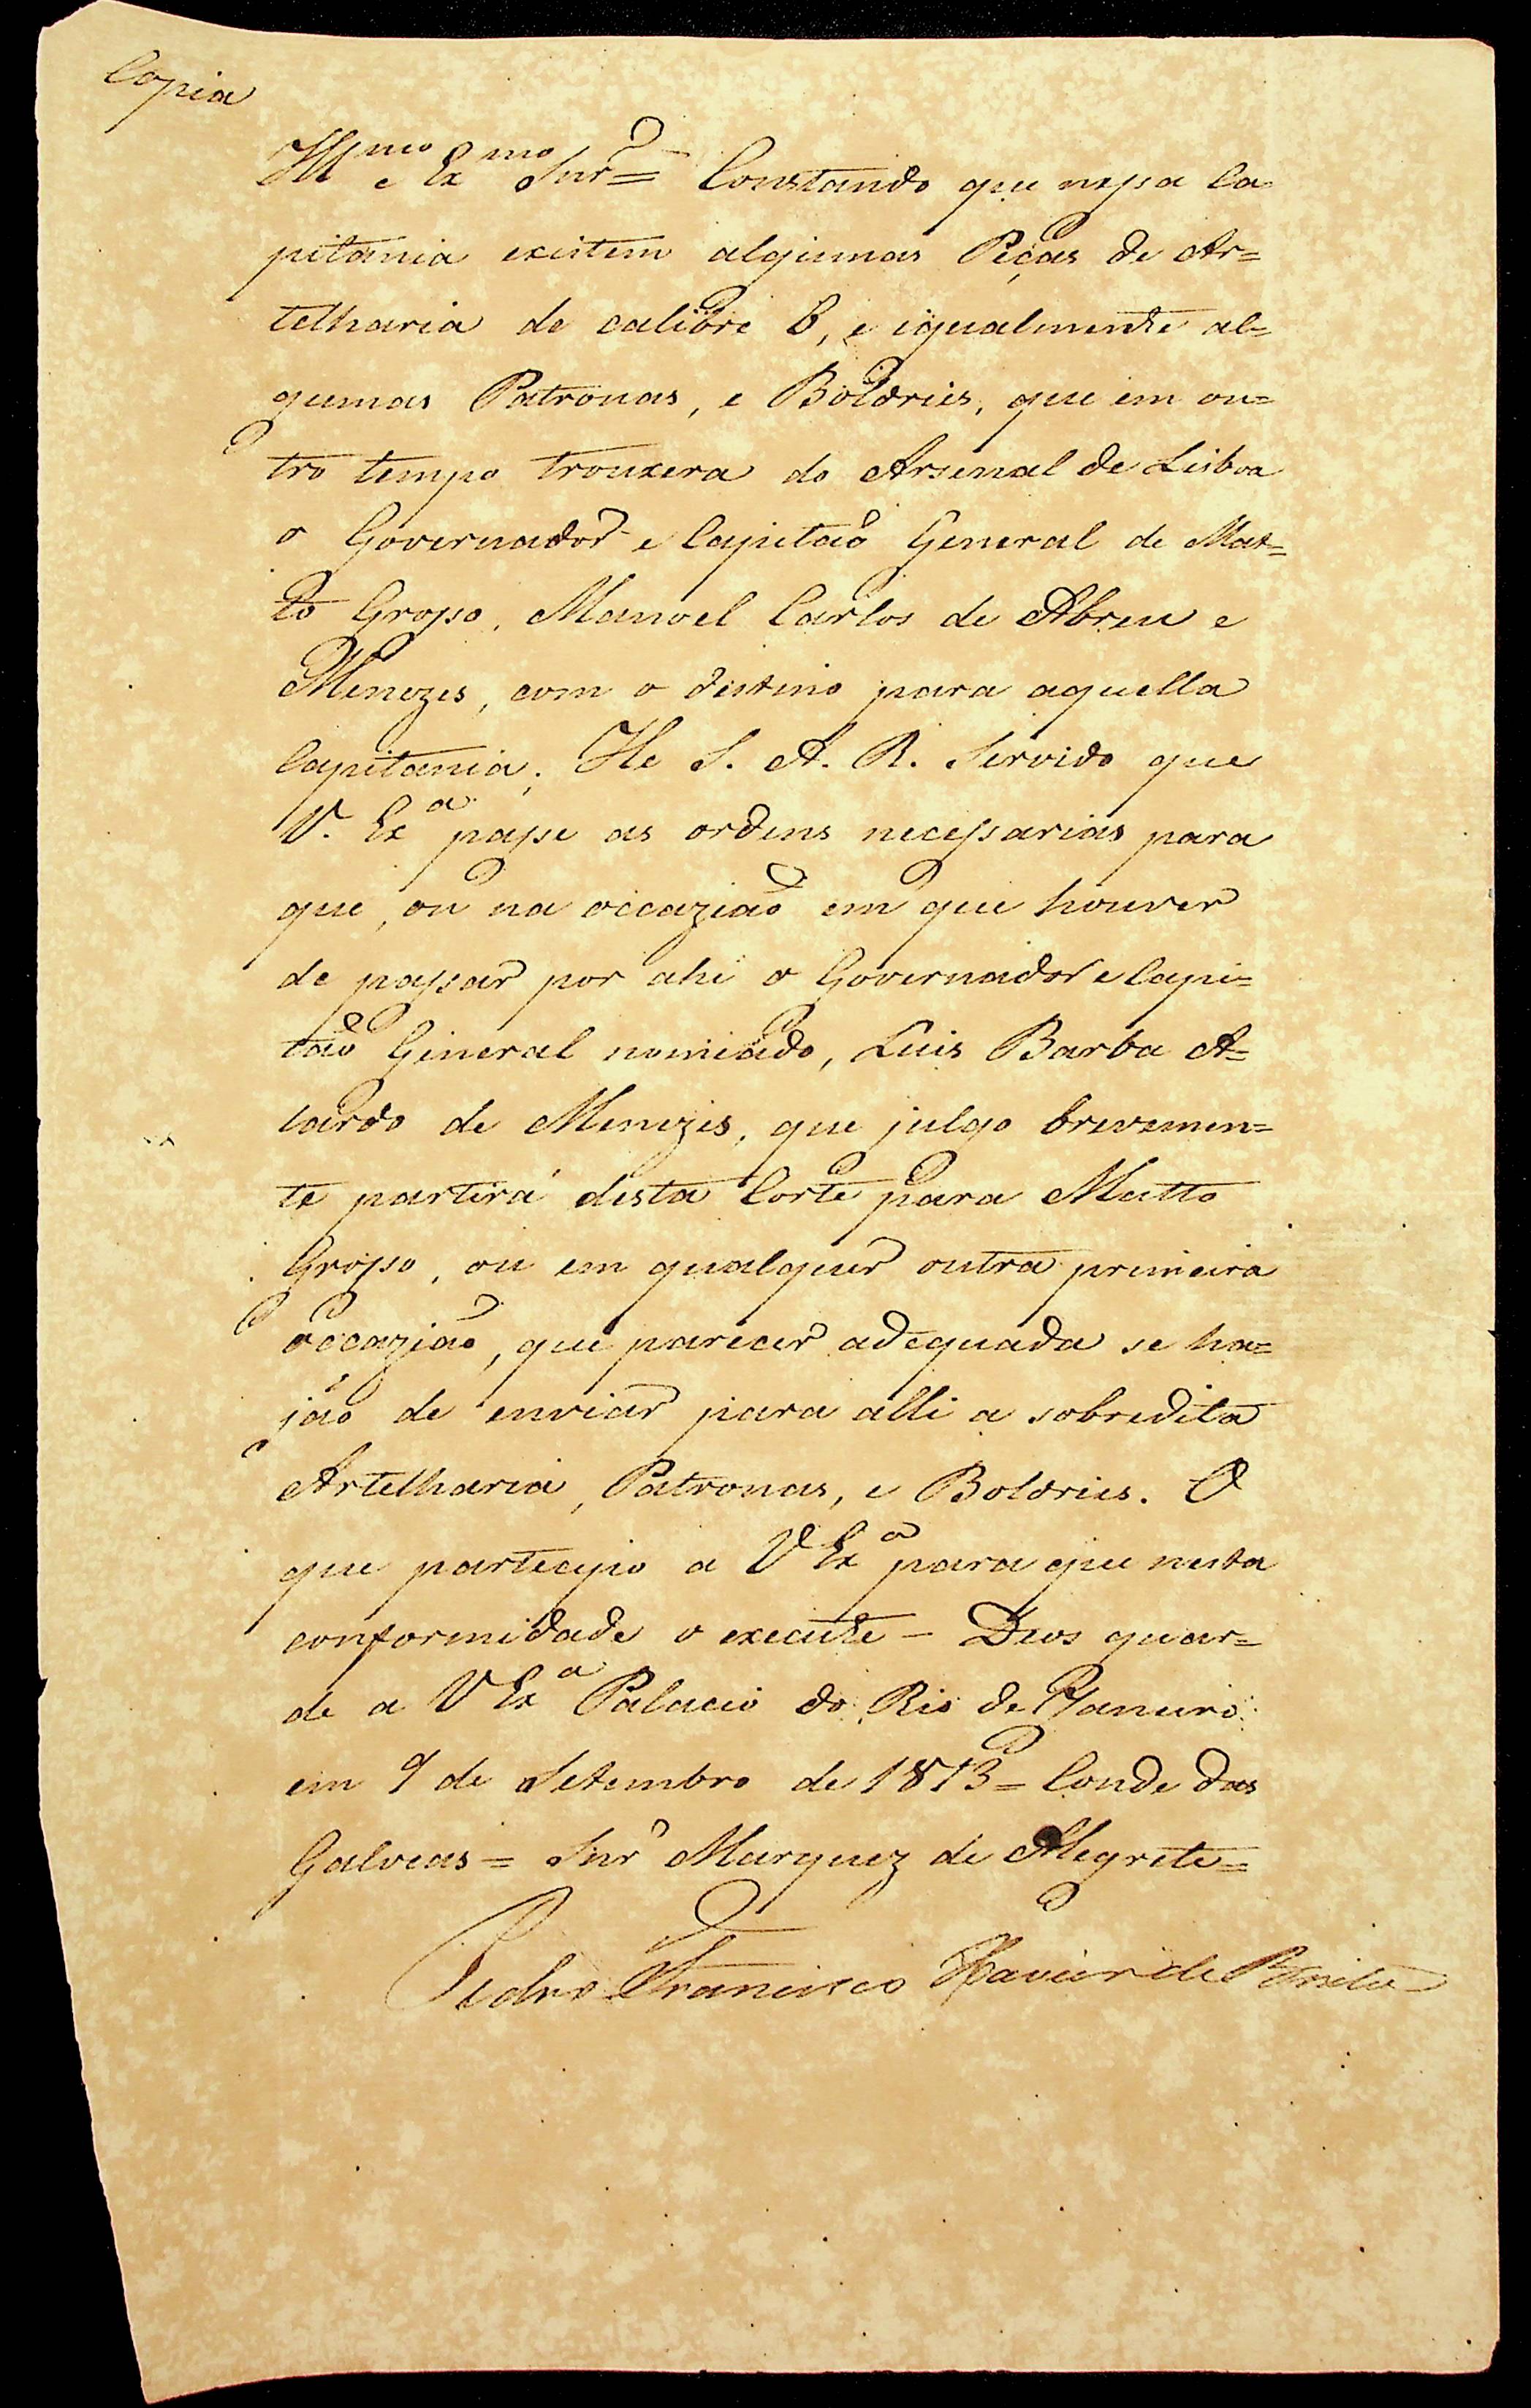 Copia
Illmo e Exmo Snr = Constando que nessa Ca
pitania existem algumas Peças de Ar=
telharia de calibre 6, e igualmente al=
gumas Patronas, e Boldries, que em ou=
tro tempo trouxera do Arsenal de Lisboa
o Governador e Capitaõ General de Mat=
to Grosso, Manoel Carlos de Abreu e
Menezes, com o destino para aquella
Capitania; He S. A. R. Servido que
V. Exa passe as ordens necessarias para
que, ou na occaziaõ em que houver
de passar por ahi o Governador e Capi=
taõ General nomiado, Luis Barba A=
lardo de Menezes, que julgo brevemen=
te partirá desta Corte para Matto
Grosso, ou em qualquer outra primeira
occaziaõ, que parecer adequada se ha=
jaõ de enviar para alli a sobredita
Artelharia, Patronas, e Boldries. O
que participo a V Exa para que nesta
conformidade o execute - Deos guar=
de a V Exa Palacio do Rio de Janeiro
em 9 de Setembro de 1813 = Conde das
Galveas = Snr Marquez de Alegrete =
Pedro Francisco Xavier de Brito